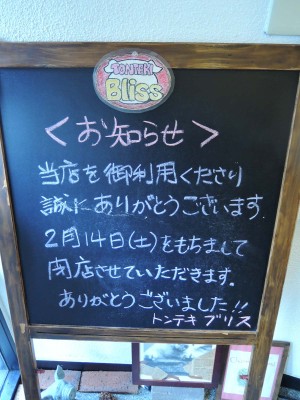 TONTEKI
Bliss
＜お知らせ＞
当店を御利用くださり
誠にありがとうございます.
2月14日(土)をもちまして
閉店させていただきます.
ありがとうございました!!
トンテキ ブリス